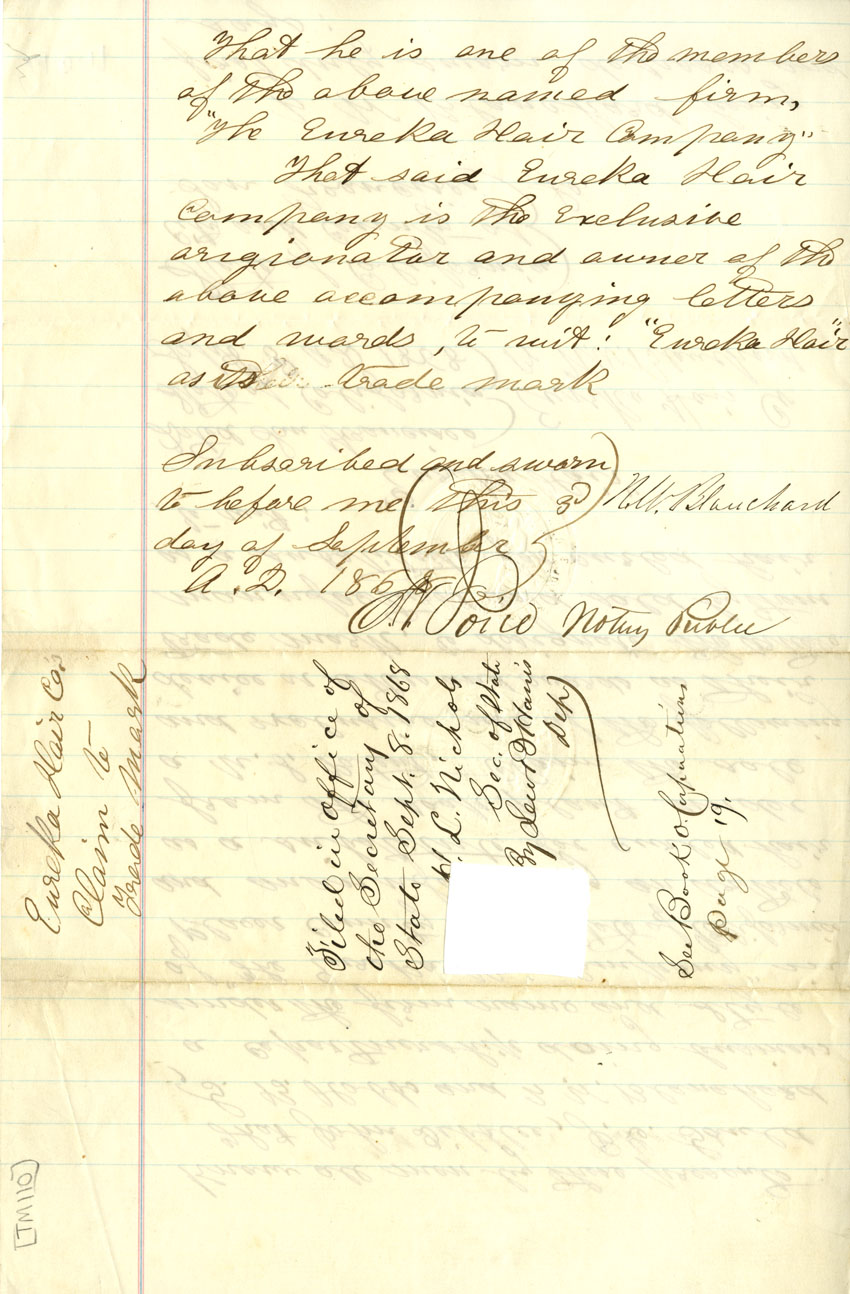 That he is one of the members
of the above named firm,
"The Eureka Hair Company"
That said Eureka Hair
Company is the Exclusive
origionator and owner of the
above accompanying letters
and words, to wit: "Eureka Hair"
as its trade mark
Subscribed and sworn
to before me this 3d
day of September
A.D. 1868
N.W. Blanchard
Notary Public
Eureka Hair Co's
Claim to
Trade Mark
Filed in Office of
the Secretary of
State Sept. 8. 1868
H. L. Nichols
Sec. of State
By Lewis B Harris
Dep
See Book 2 Corporations
page 19.
[TM110]